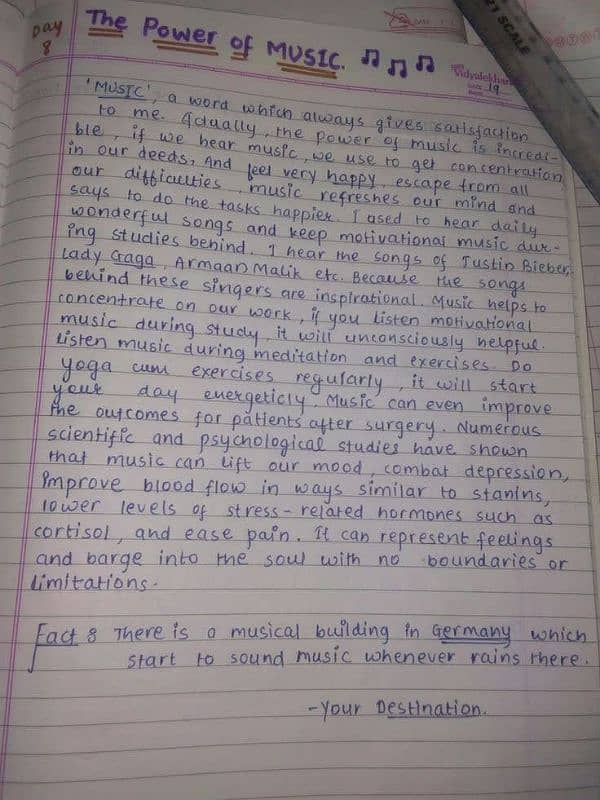 Day 8
The Power of MUSIC. ♫ ♫ ♫
Vidyalekhan
19
21 SCALE
'MUSIC', a word which always gives satisfaction
to me. Actually, the power of music is incredi-
ble, if we hear music, we use to get concentration
in our deeds, And feel very happy, escape from all
our difficulties, music refreshes our mind and
says to do the tasks happier. I used to hear daily
wonderful songs and keep motivational music dur-
ing studies behind. I hear the songs of Justin Bieber,
Lady Gaga, Armaan Malik etc. Because the songs
behind these singers are inspirational. Music helps to
concentrate on our work, if you listen motivational
music during study, it will unconsciously helpful.
Listen music during meditation and exercises. Do
yoga cum exercises regularly, it will start
your day energeticly. Music can even improve
the outcomes for patients after surgery. Numerous
scientific and psychological studies have shown
that music can lift our mood, combat depression,
Improve blood flow in ways similar to stanins,
lower levels of stress-related hormones such as
cortisol, and ease pain. It can represent feelings
and barge into the soul with no boundaries or
limitations.
Fact 8 There is a musical building in Germany which
start to sound music whenever rains there.
-Your Destination.